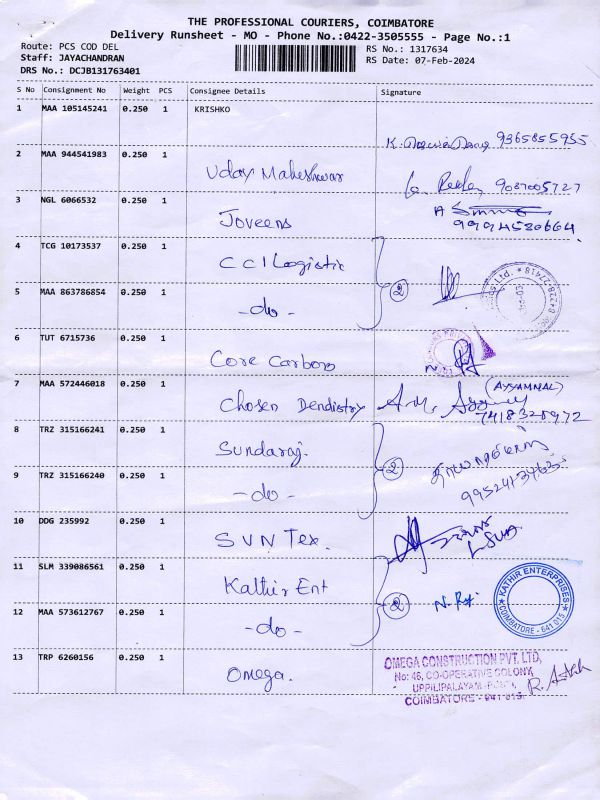 THE PROFESSIONAL COURIERS, COIMBATORE
Delivery Runsheet - MO - Phone No.:0422-3505555 - Page No.:1
Route: PCS COD DEL
RS No.: 1317634
Staff: JAYACHANDRAN
RS Date: 07-Feb-2024
DRS No.: DCJB131763401
S No Consignment No Weight PCS Consignee Details Signature
1 MAA 105145241 0.250 1 KRISHKO
9365855955
2 MAA 944541983 0.250 1
Uday Maheshwar
9087005727
3 NGL 6066532 0.250 1
Joveens
99994520664
4 TCG 10173537 0.250 1
CCI Logistic
2
5 MAA 863786854 0.250 1
-do-
6 TUT 6715736 0.250 1
Core Carbons
7 MAA 572446018 0.250 1
(AYYAMNAL)
Chosen Dendistry
7418328972
8 TRZ 315166241 0.250 1
Sundaraj.
2
9 TRZ 315166240 0.250 1
-do-
10 DDG 235992 0.250 1
SVN Tex.
11 SLM 339086561 0.250 1
Kathir Ent
KATHIR ENTERPRISES
COIMBATORE - 641 015
2
12 MAA 573612767 0.250 1
-do-
13 TRP 6260156 0.250 1
Omega.
OMEGA CONSTRUCTION PVT. LTD,
No: 46, CO-OPERATIVE COLONY,
UPPILIPALAYAM
COIMBATORE - 641 015.